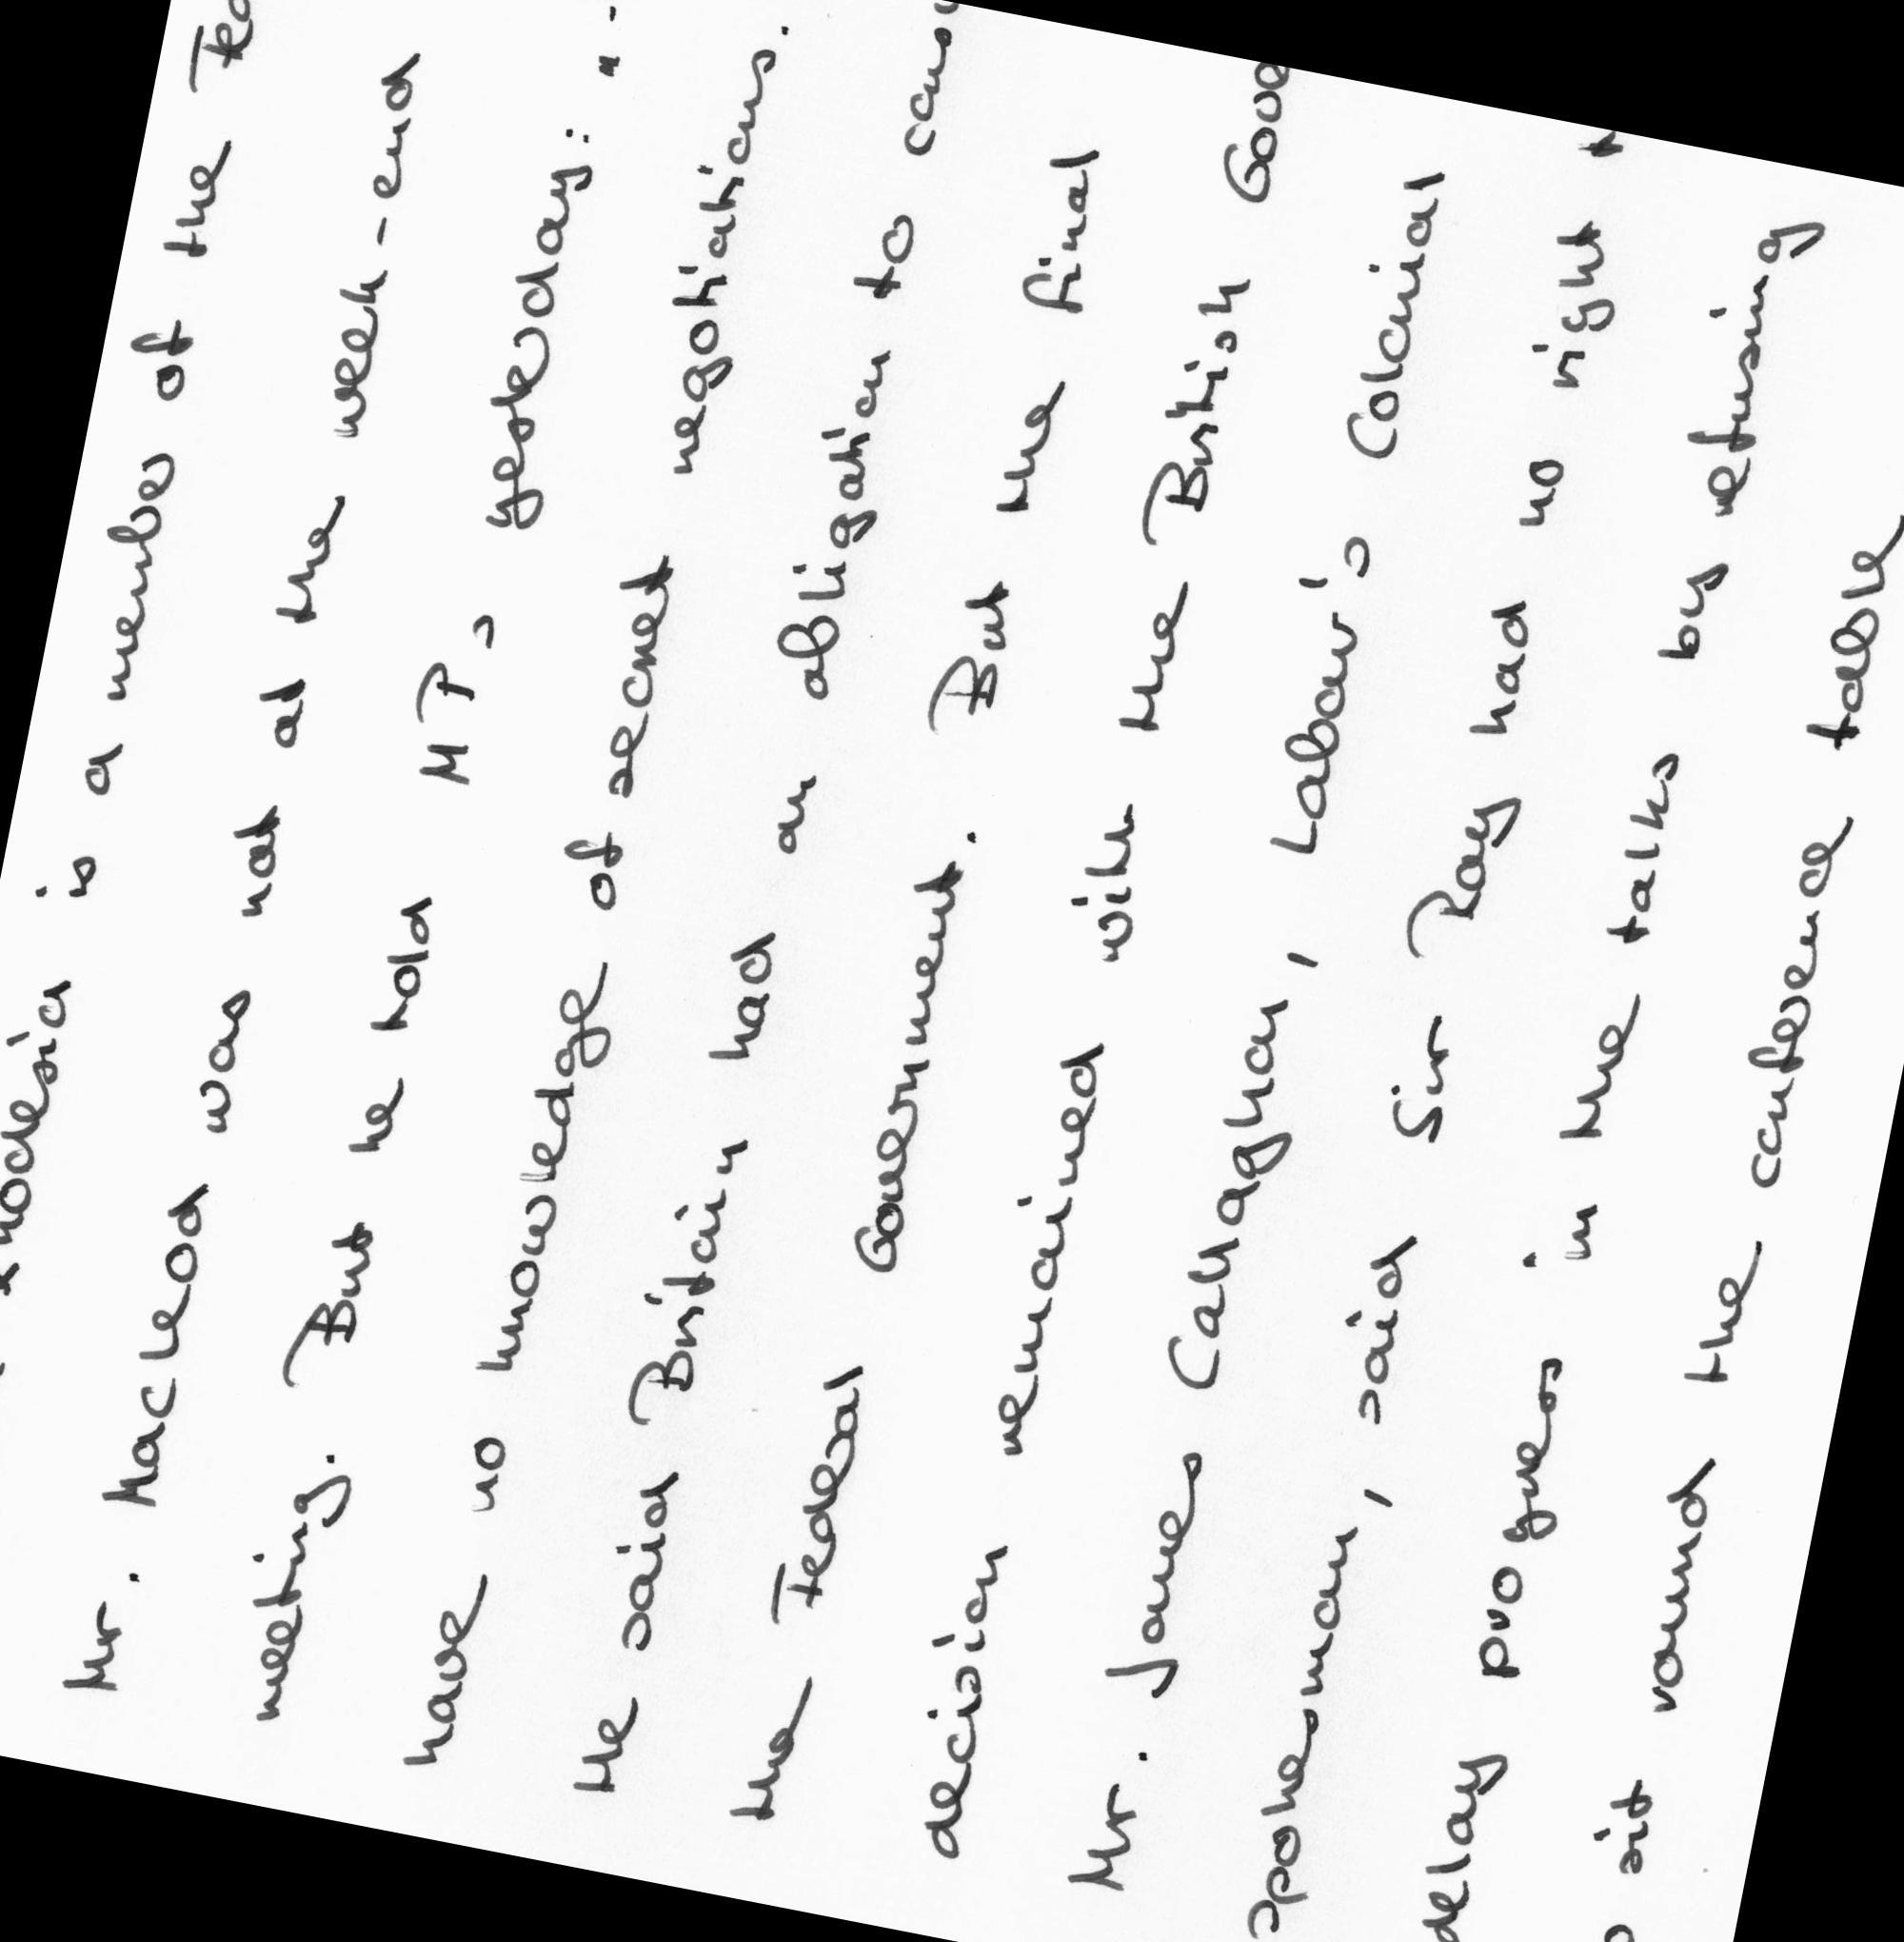 Rhodesia is a member of the
Mr. Macleod was not at the week-end
meeting. But he told M Ps yesterday: " -
have no knowledge of secret negotiations.
He said Britain had an obligation to
the Federal Government. But the final
decision remained with the British
Mr. James Callaghan, Labour's Colonial
spokesman, said Sir Roy had no right
delay progress in the talks by refusing
sit round the conference table